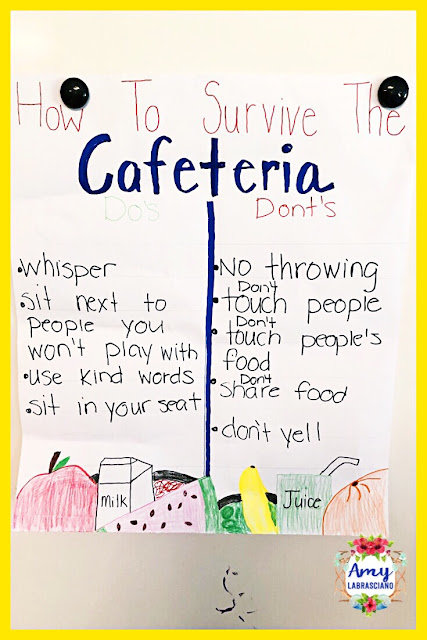 How To Survive The
Cafeteria
Do's
Dont's
•whisper
•sit next to
people you
won't play with
•use kind words
•sit in your seat
•No throwing
Don't
•touch people
Don't
•touch people's
food
Don't
•share food
•don't yell
milk
Juice
Amy
LABRASCIANO